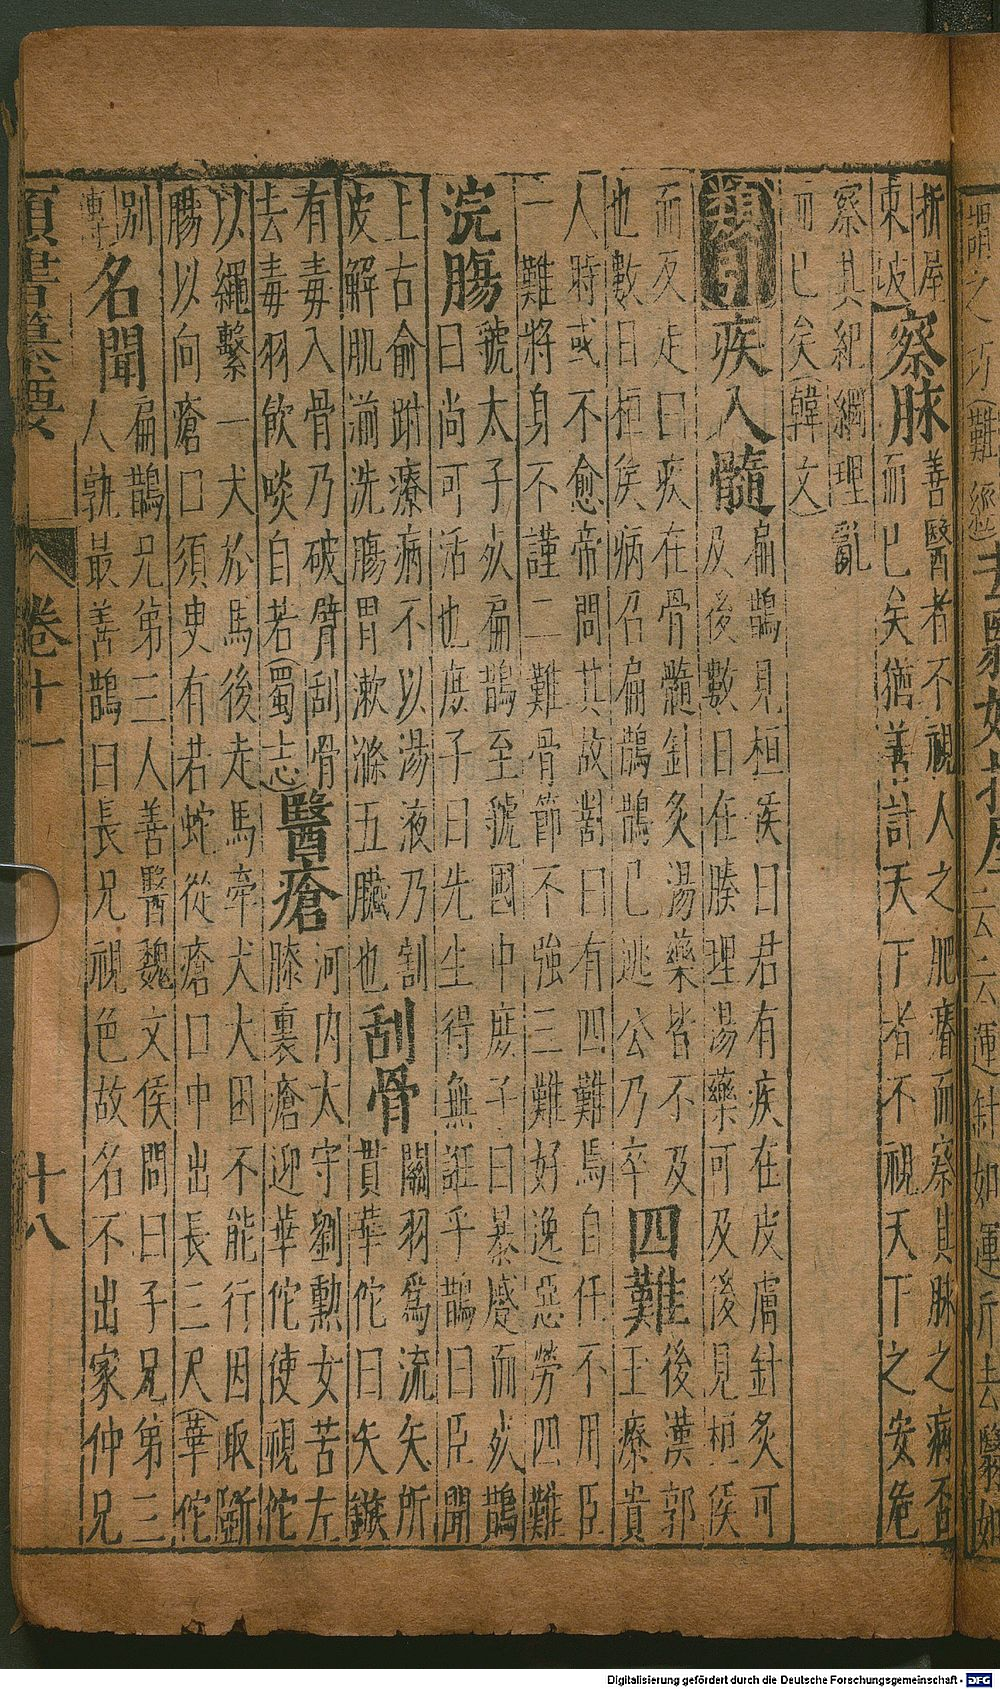 折屋
東坡)
察脉
善醫者不視人之肥瘠而察其脉之病否
而已矣猶善計天下者不視天下之安危
察其紀綱理亂
而已矣(韓文)
類引
疾入髓
扁鵲見桓侯曰君有疾在皮膚針灸可
及後數日在腠理湯藥可及後見桓侯
而反走曰疾在骨髓針灸湯藥皆不及
也數日桓侯病召扁鵲鵲已逃公乃卒
四難
後漢郭
玉療貴
人時或不愈帝問其故對曰有四難焉自任不用臣
一難將身不謹二難骨節不強三難好逸惡勞四難
浣膓
虢太子死扁鵲至虢國中庶子曰暴蹙而死鵲
曰尚可活也庶子曰先生得無誑乎鵲曰臣聞
上古俞跗療病不以湯液乃割
皮解肌湔洗膓胃漱滌五臓也
刮骨
關羽爲流矢所
貫華佗曰矢鏃
有毒入骨乃破臂刮骨
去毒羽飲啖自若(蜀志)
醫瘡
河内太守劉勳女苦左
膝裏瘡迎華佗使視佗
以繩繫一犬於馬後走馬牽犬犬困不能行因取斷
膓以向瘡口須臾有若蛇從瘡口中出長三尺(華佗
別
傳)
名聞
扁鵲兄弟三人善醫魏文侯問曰子兄弟三
人孰最善鵲曰長兄視色故名不出家仲兄
類書纂要 卷十一 十八
Digitalisierung gefördert durch die Deutsche Forschungsgemeinschaft - DFG